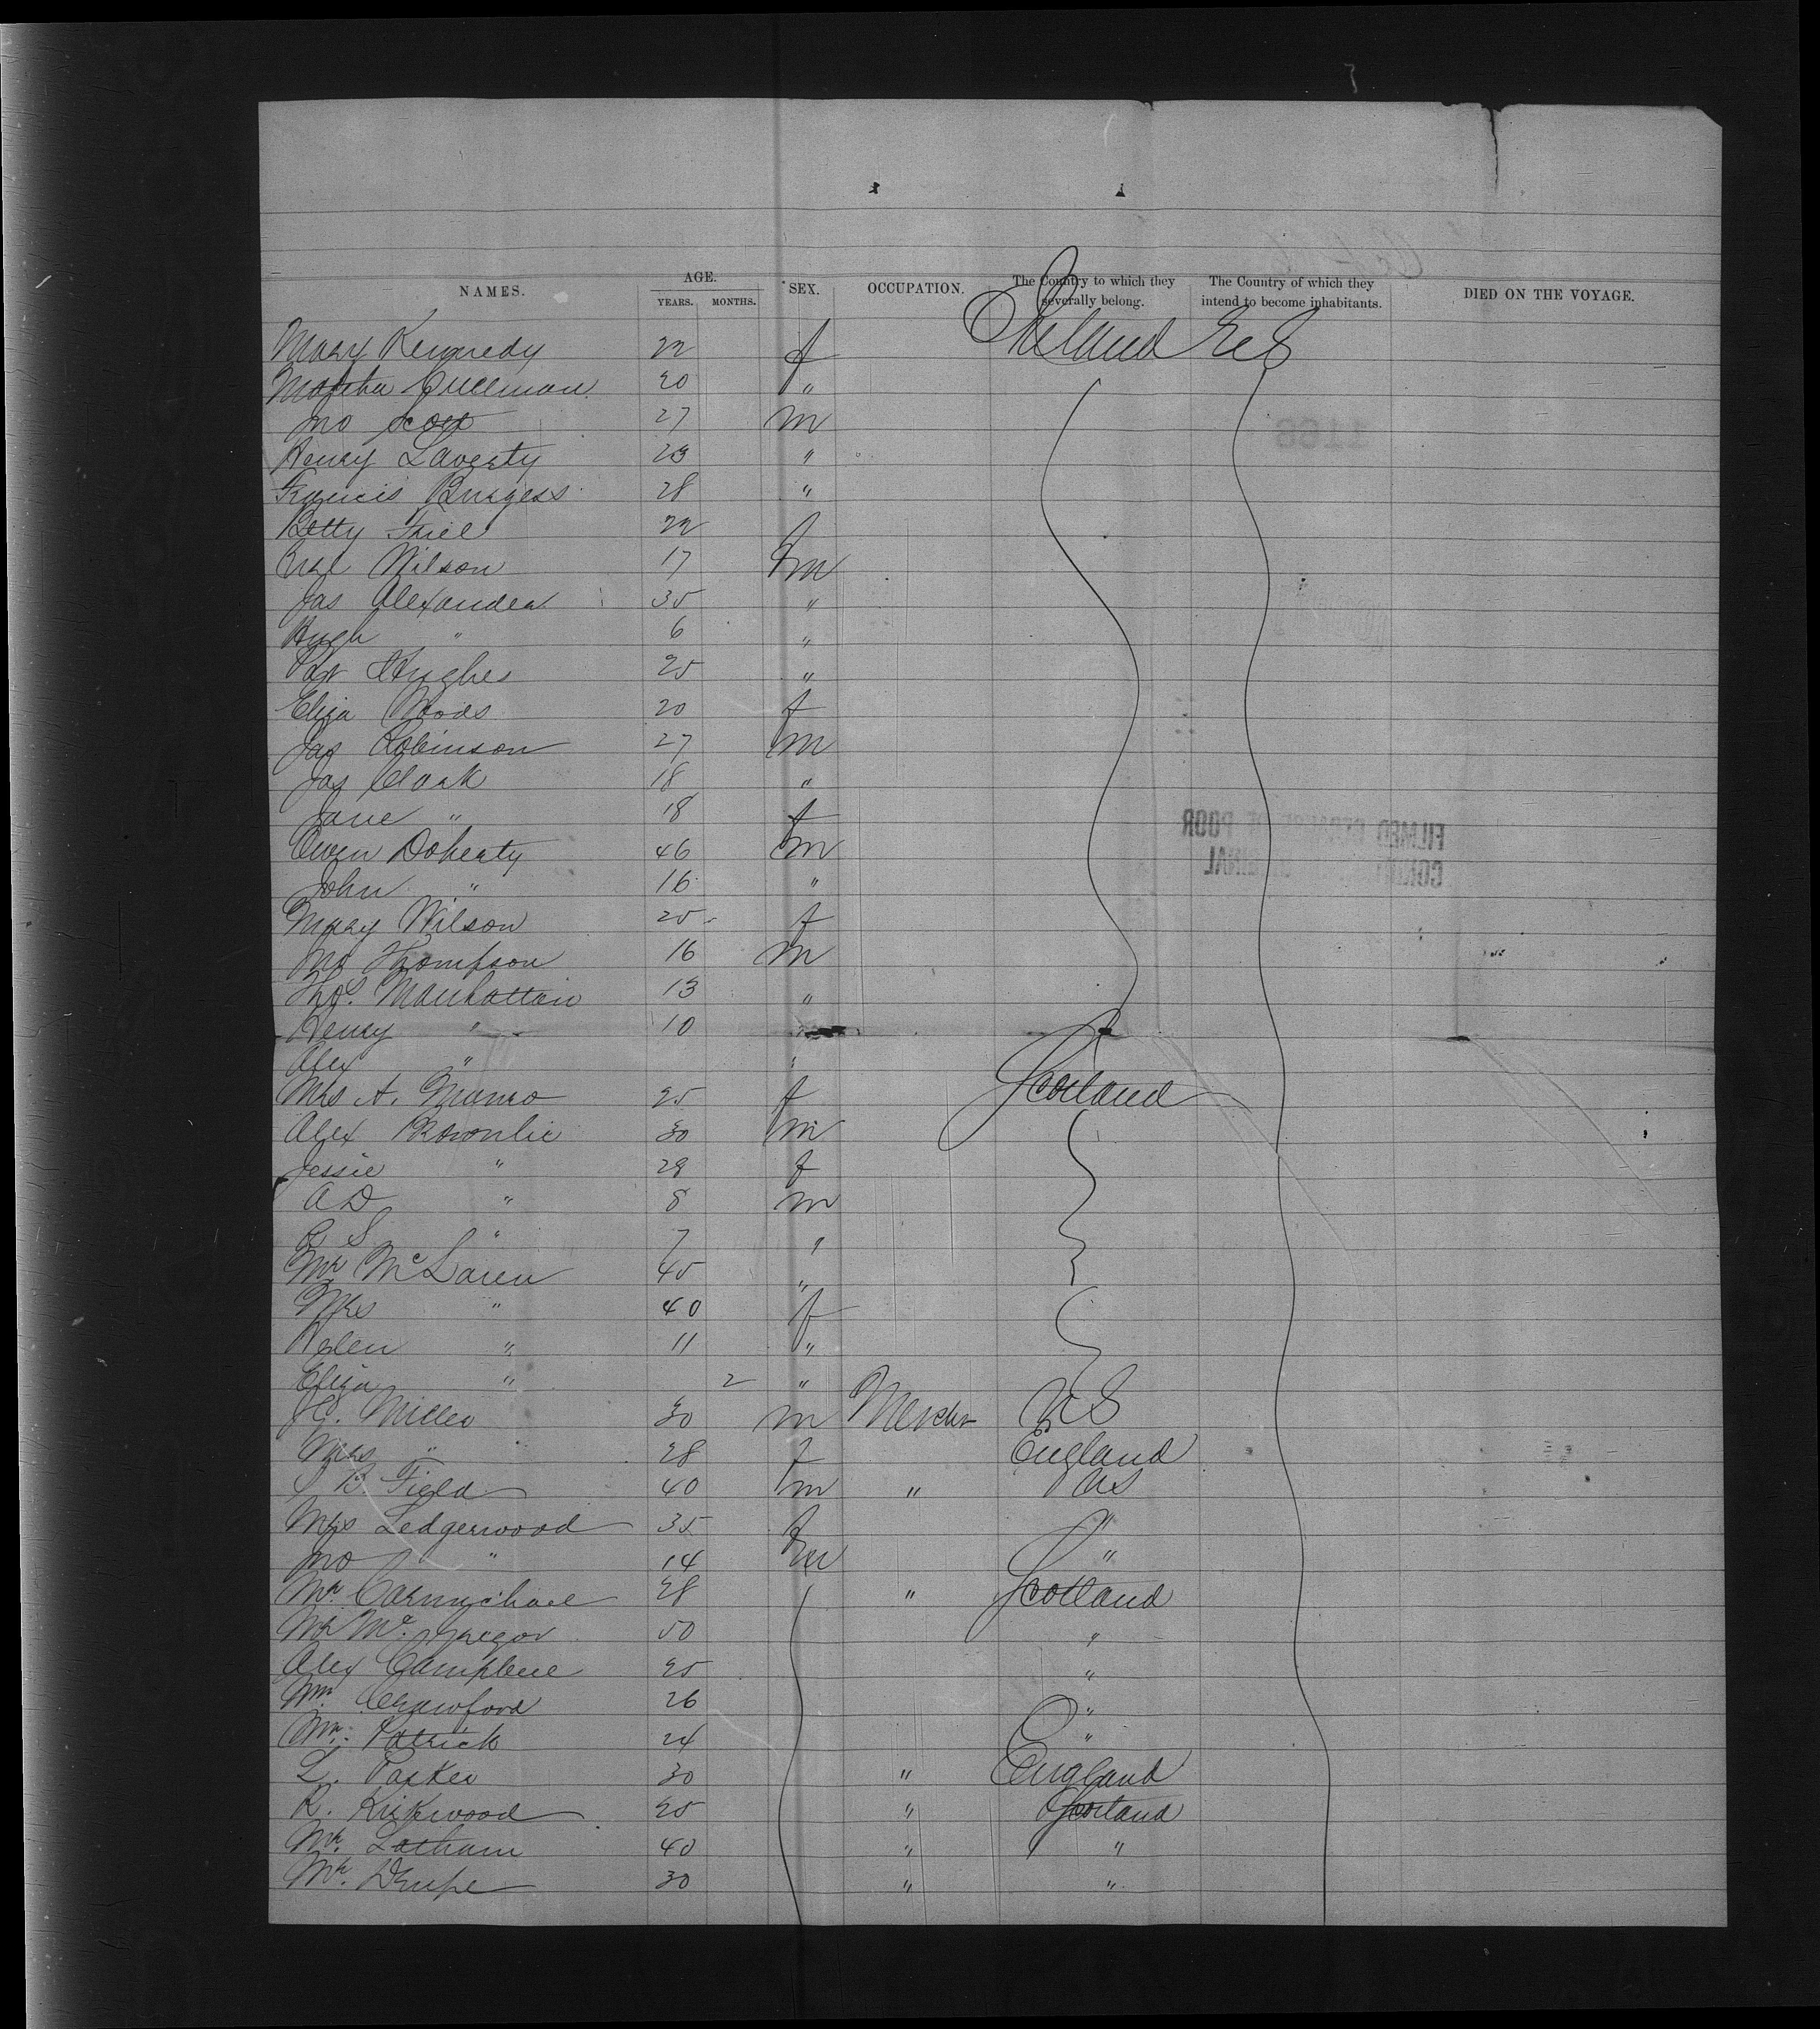 NAMES. AGE. YEARS. MONTHS. SEX. OCCUPATION. The Country to which they severally belong. The Country of which they intend to become inhabitants. DIED ON THE VOYAGE.
Mary Kennedy 22 f Ireland U S
Martha Cullman 20 "
Jno Scott 27 m
Henry Laverty 23 "
Francis Burgess 28 "
Betty Friel 22 f
Wilson 17 m
Jas Alexander 35 "
Hugh " 6 "
Pat Hughes 25 "
Eliza Woods 20 f
Jas Robinson 27 m
Jas Clark 18 "
Jane " 18 f
Owen Doherty 46 m
John " 16 "
Mary Wilson 25 f
Jno Thompson 16 m
Thos. Manhattan 13 "
Henry " 10 "
Alex " "
Mrs A. Munro 25 f Scotland
Alex Brownlie 30 m
Jessie " 28 f
A D " 8 m
R S " 7 "
Mr McLaren 45 "
Mrs " 40 f
Helen " 11 "
Eliza " 2 "
Miller 30 m Mercht U S
Mrs " 28 f England
B Field 40 m " U S
Mrs Ledgerwood 35 f "
Jno " 14 m "
Mr. Carmichael 28 " Scotland
Mr Mc.Gregor 50 "
Alex Campbell 25 "
Wm. Crawford 26 "
Wm. Patrick 24 "
L. Parker 30 " England
R. Kirkwood 25 " Scotland
Mr. Latham 40 " "
Mr. 30 " "
1166
FILMED BECAUSE OF POOR
CONDITION OF ORIGINAL